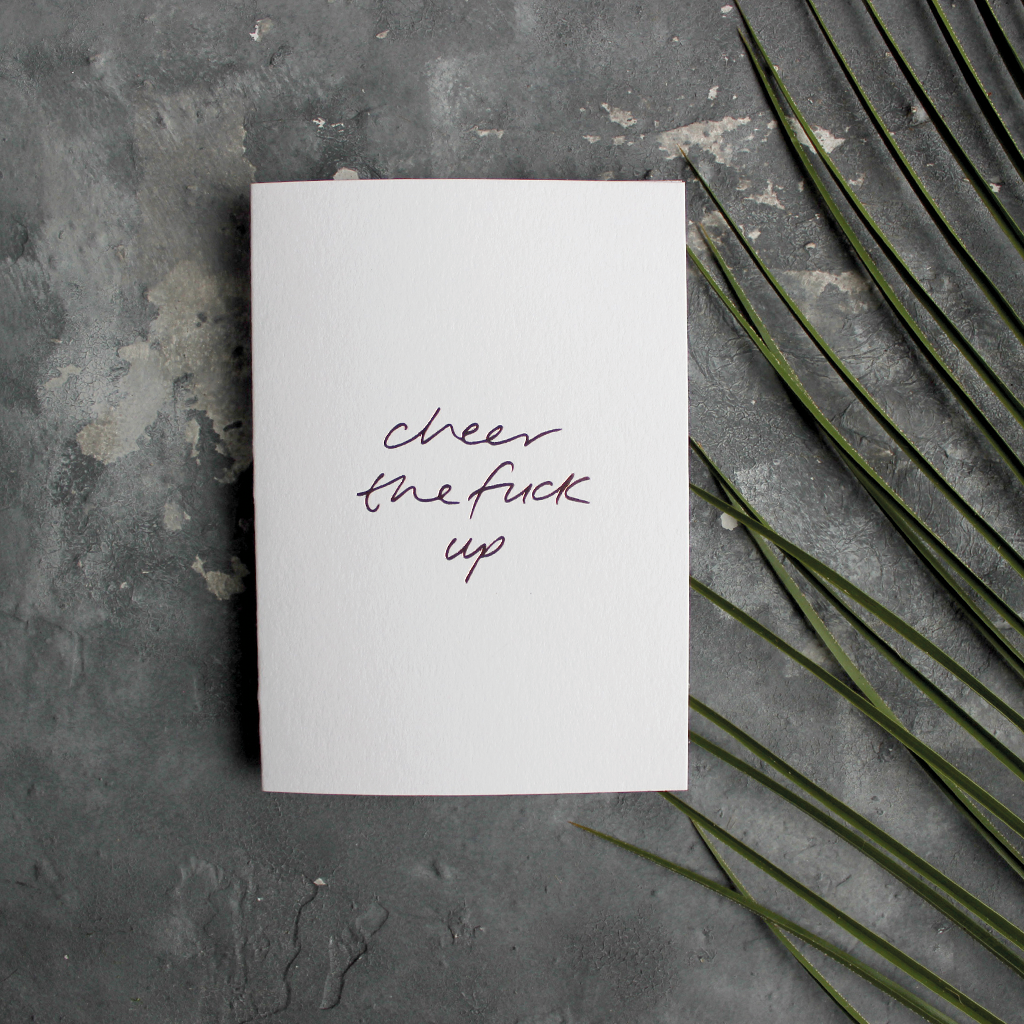 cheer
the fuck
up